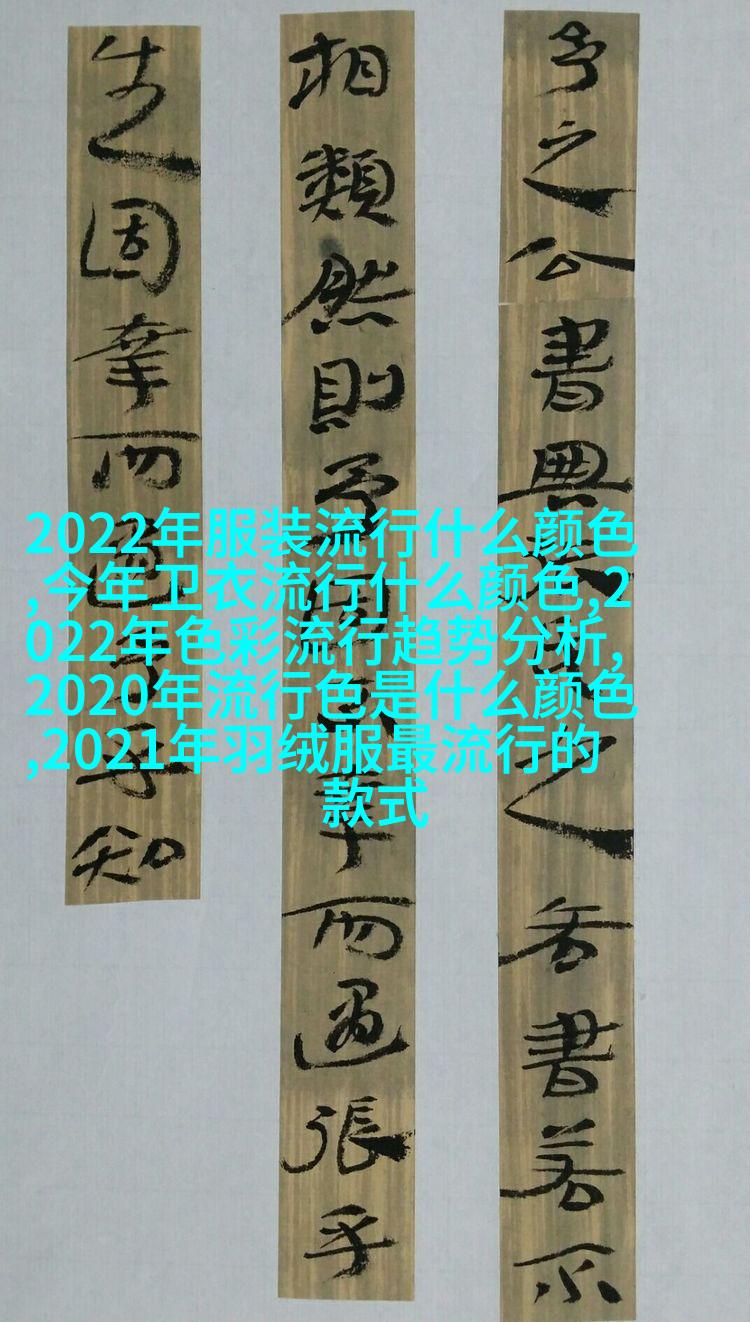 2022年服装流行什么颜色
,今年卫衣流行什么颜色,2
022年色彩流行趋势分析,
2020年流行色是什么颜色
,2021年羽绒服最流行的
款式
之公書之書若不
相類然則予幸而遇張乎
生固幸而遇知